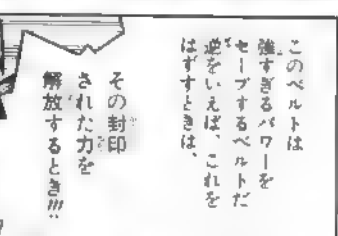 このベルトは
強すぎるパワーを
セーブするベルトだ
逆をいえば、これを
はずすときは、
その封印
された力を
解放するとき!!!